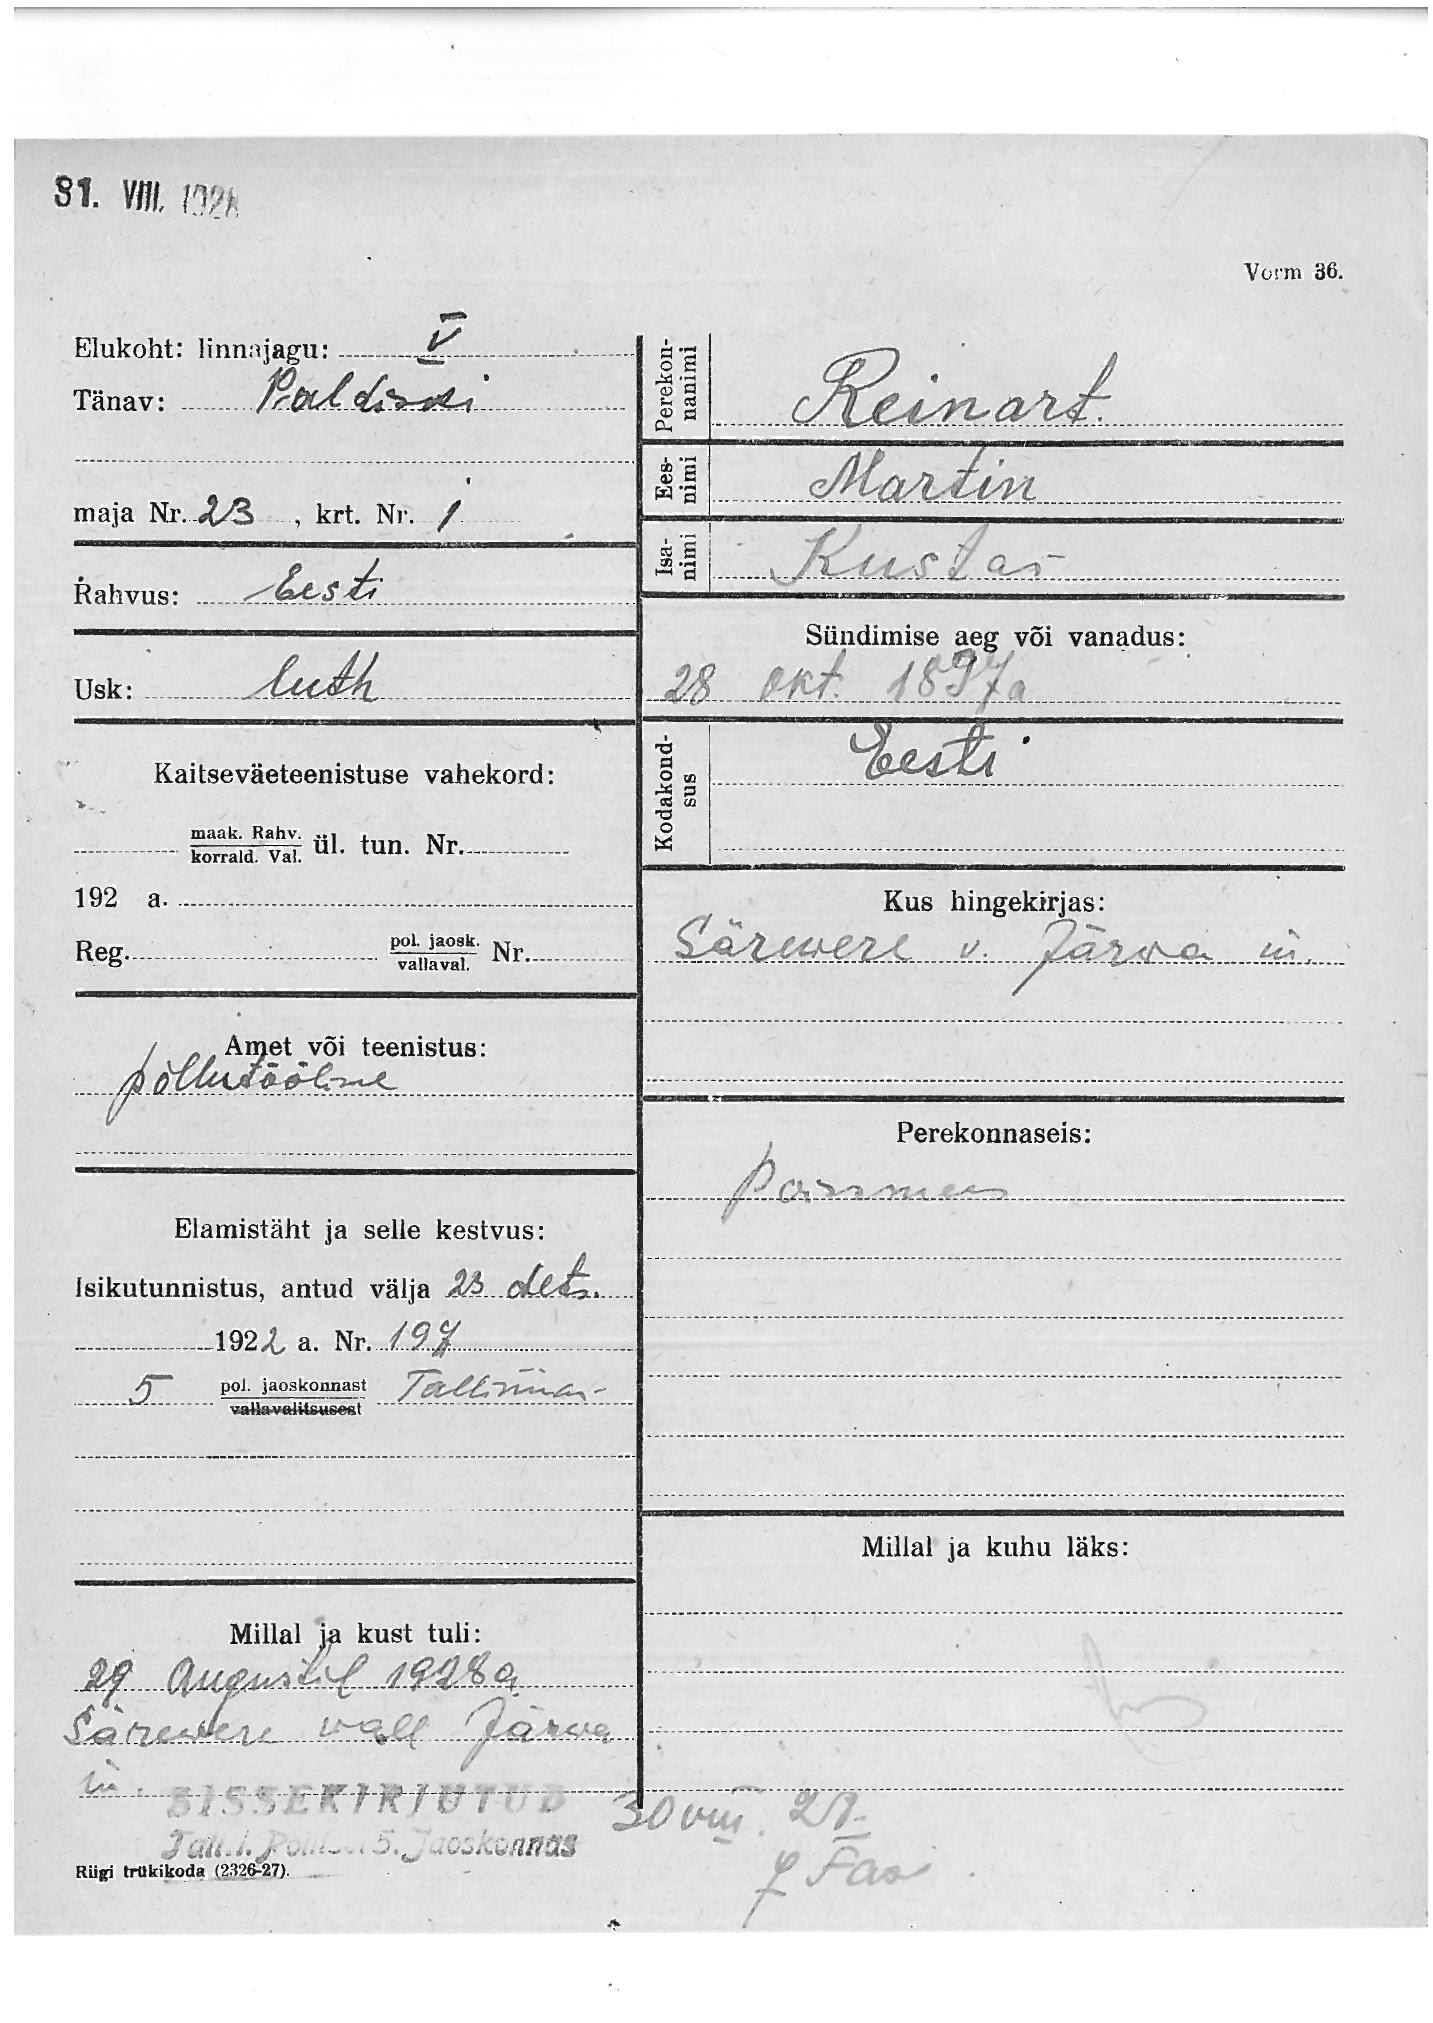 31. VIII. 1928
Vorm 36.
Elukoht: linnajagu: V
Tänav: Paldiski
maja Nr. 23 , krt. Nr. 1
Rahvus: Eesti
Usk: luth
Kaitseväeteenistuse vahekord:
maak. Rahv.
korrald. Val. ül. tun. Nr.
192 a.
Reg. pol. jaosk.
vallaval. Nr.
Amet või teenistus:
põllutööline
Elamistäht ja selle kestvus:
Isikutunnistus, antud välja 23 dets.
1922 a. Nr. 197
5 pol. jaoskonnast Tallinnas
vallavalitsusest
Millal ja kust tuli:
29 Augustil 1928 a
Särewere wall Järwa
m.
SISSEKIRJUTUD
Tall. l. Politsei 5. Jaoskonnas
Riigi trükikoda (2326-27).
Perekon-
nanimi
Reinart.
Ees-
nimi
Martin
Isa-
nimi
Kustas
Sündimise aeg või vanadus:
28 okt. 1897 a
Kodakond-
sus
Eesti
Kus hingekirjas:
Särewere v. Järwa m.
Perekonnaseis:
poissmees
Millal ja kuhu läks:
30 VIII.